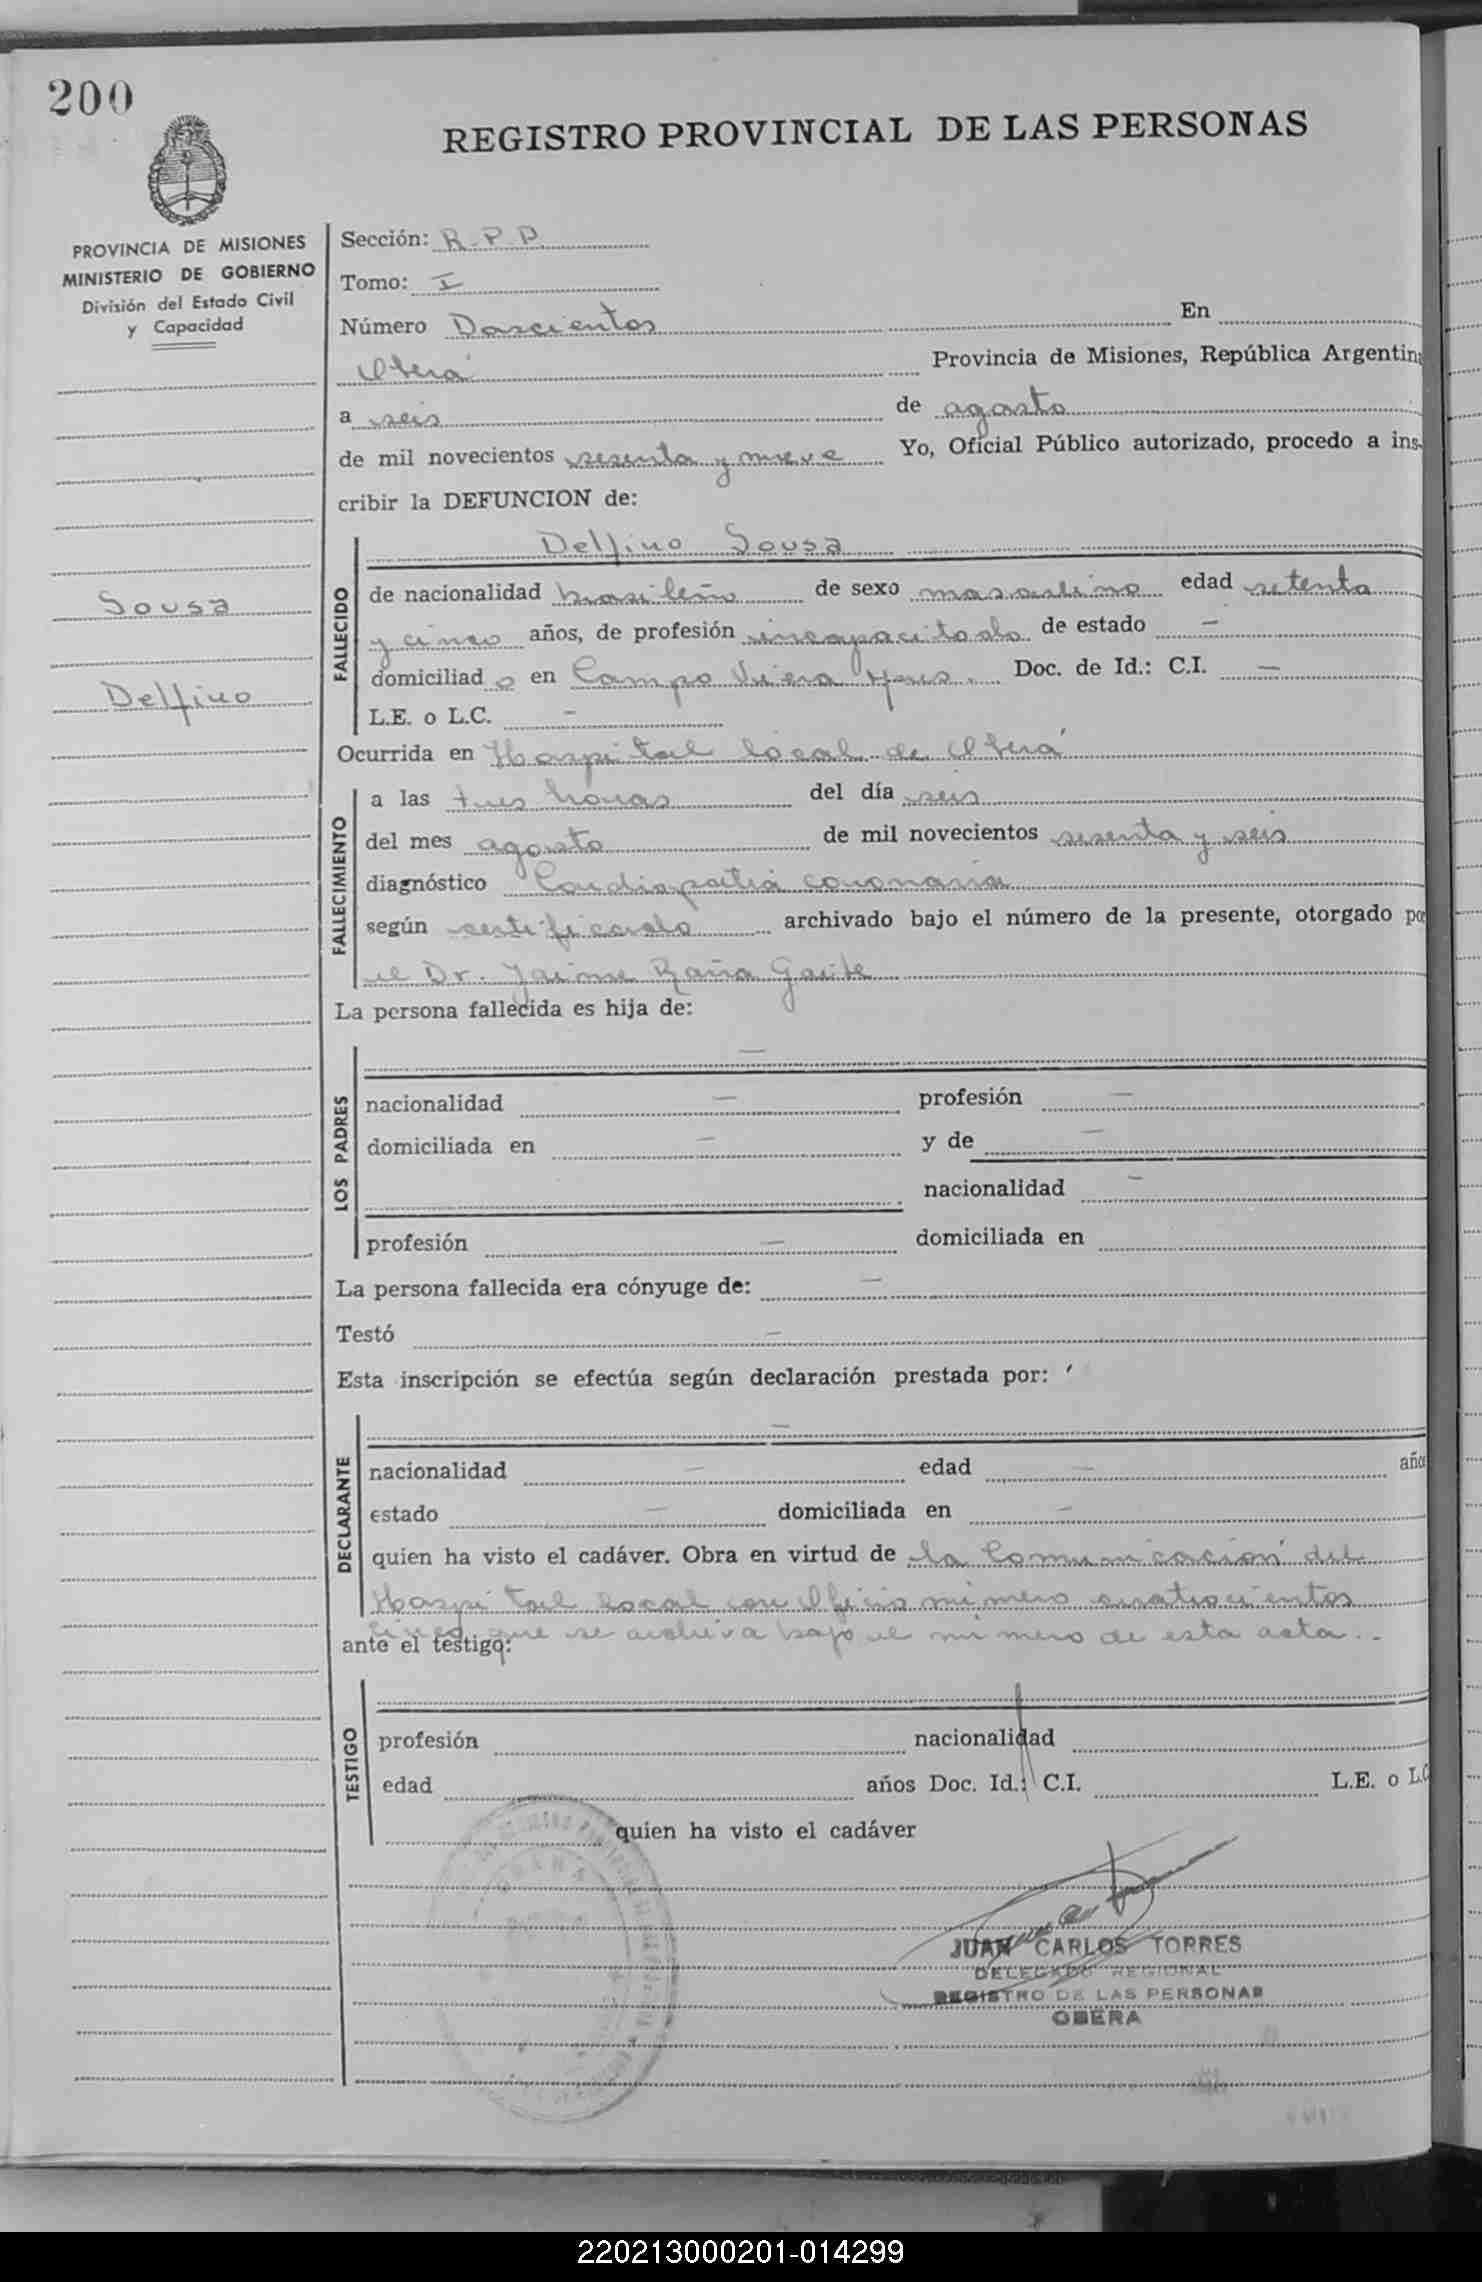 200
REGISTRO PROVINCIAL DE LAS PERSONAS
PROVINCIA DE MISIONES
MINISTERIO DE GOBIERNO
División del Estado Civil
y Capacidad
Sousa
Delfino
Sección: R.P.P.
Tomo: I
Número Doscientos En
Oberá Provincia de Misiones, República Argentina
a seis de agosto
de mil novecientos sesenta y nueve Yo, Oficial Público autorizado, procedo a ins-
cribir la DEFUNCION de:
FALLECIDO
Delfino Sousa
de nacionalidad brasileño de sexo masculino edad setenta
y cinco años, de profesión incapacitado de estado -
domiciliado en Campo Viera Mnes. Doc. de Id.: C.I. -
L.E. o L.C. -
Ocurrida en Hospital local de Oberá
FALLECIMIENTO
a las tres horas del día seis
del mes agosto de mil novecientos sesenta y seis
diagnóstico Cardiopatía coronaria
según certificado archivado bajo el número de la presente, otorgado por
el Dr. Jaime Raña
La persona fallecida es hija de:
LOS PADRES
-
nacionalidad - profesión -
domiciliada en - y de -
nacionalidad -
profesión - domiciliada en
La persona fallecida era cónyuge de: -
Testó -
Esta inscripción se efectúa según declaración prestada por:
DECLARANTE
-
nacionalidad - edad - año
estado - domiciliada en -
quien ha visto el cadáver. Obra en virtud de la Comunicación del
Hospital local con Oficio número cuatrocientos
cinco que se archiva bajo el número de esta acta.-
ante el testigo:
TESTIGO
profesión nacionalidad
edad años Doc. Id.: C.I. L.E. o L.C
quien ha visto el cadáver
JUAN CARLOS TORRES
DELEGADO REGIONAL
REGISTRO DE LAS PERSONAS
OBERA
220213000201-014299